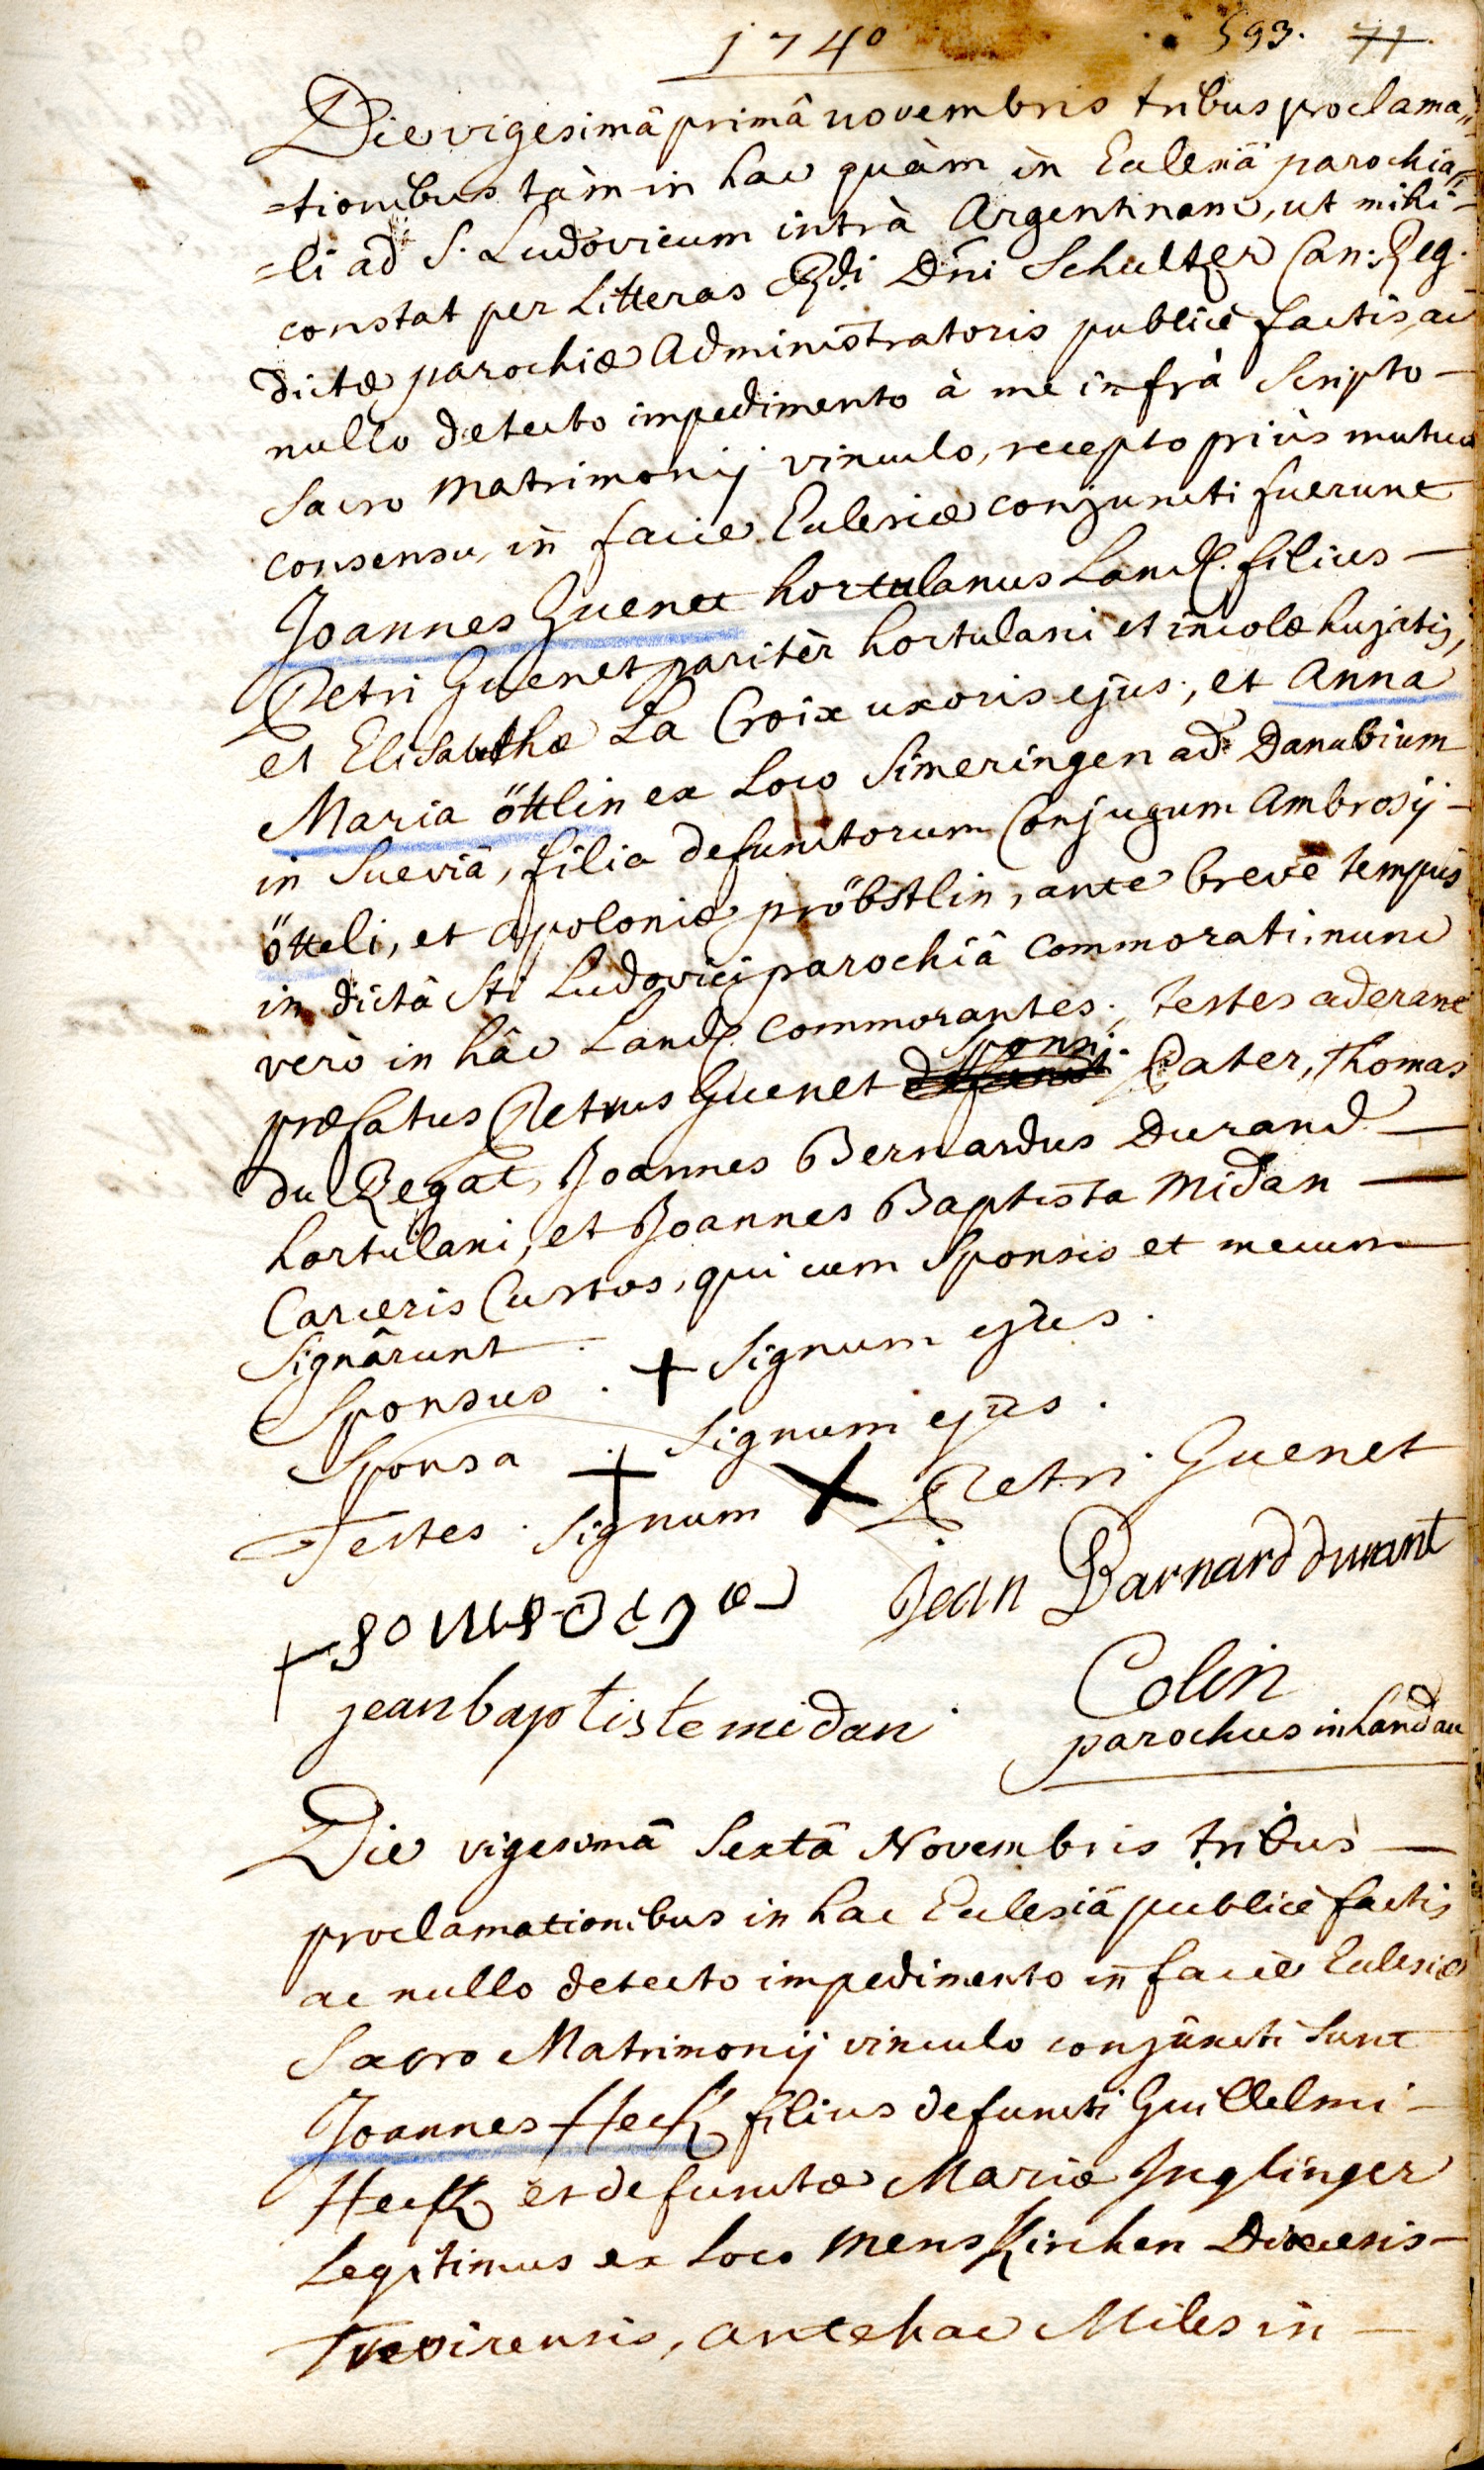 1740 593. 71.
Die vigesimâ primâ novembris tribus proclama=
=tionibus tàm in hac quàm in Ecclesiâ parochia=
=li ad S. Ludovicum intrà Argentinam, ut mihi -
constat per Litteras Rdi Dni Schultzer Can: Reg.
dictæ parochiæ Administratoris publicè factis, ac
nullo detecto impedimento à me infrà Scripto -
Sacro Matrimonij vinculo, recepto priùs mutuo
consensu, in facie Ecclesiæ conjuncti fuerunt
Joannes Guenet hortulanus Land. filius -
Petri Guenet paritèr hortulani et incolæ hujatis,
et Elisabethæ La Croix uxoris ejus; et Anna
Maria öttlin ex Loco Simeringen ad Danubium
in Sueviâ, filia defunctorum Conjugum Ambrosij -
ötteli, et Apoloniæ pröbstlin, ante breve tempus
in dictâ Sti Ludovici parochiâ commorati, nunc
verò in hâc Land. commorantes; testes aderant
præfatus Petrus Guenet Sponsi Pater, Thomas
du Regat, Joannes Bernardus Durand -
hortulani, et Joannes Baptista Midan -
Carceris Custos, qui cum Sponsis et mecum
Signârunt.
Sponsus . + Signum ejus.
Sponsa . + Signum ejus.
Testes . Signum X Petri Guenet
Jean Barnard durant
jean baptiste midan
Colin
parochus in Landau
Die vigesimâ Sextâ Novembris tribus -
proclamationibus in hac Ecclesiâ publicè factis
ac nullo detecto impedimento in facie Ecclesiæ
Sacro Matrimonij vinculo conjuncti Sunt
Joannes Heck filius defuncti Guillelmi -
Heck et defunctæ Mariæ Inglinger
Legitimus ex Loco Menskirchen Diœcesis -
Trevirensis, antehac Miles in -